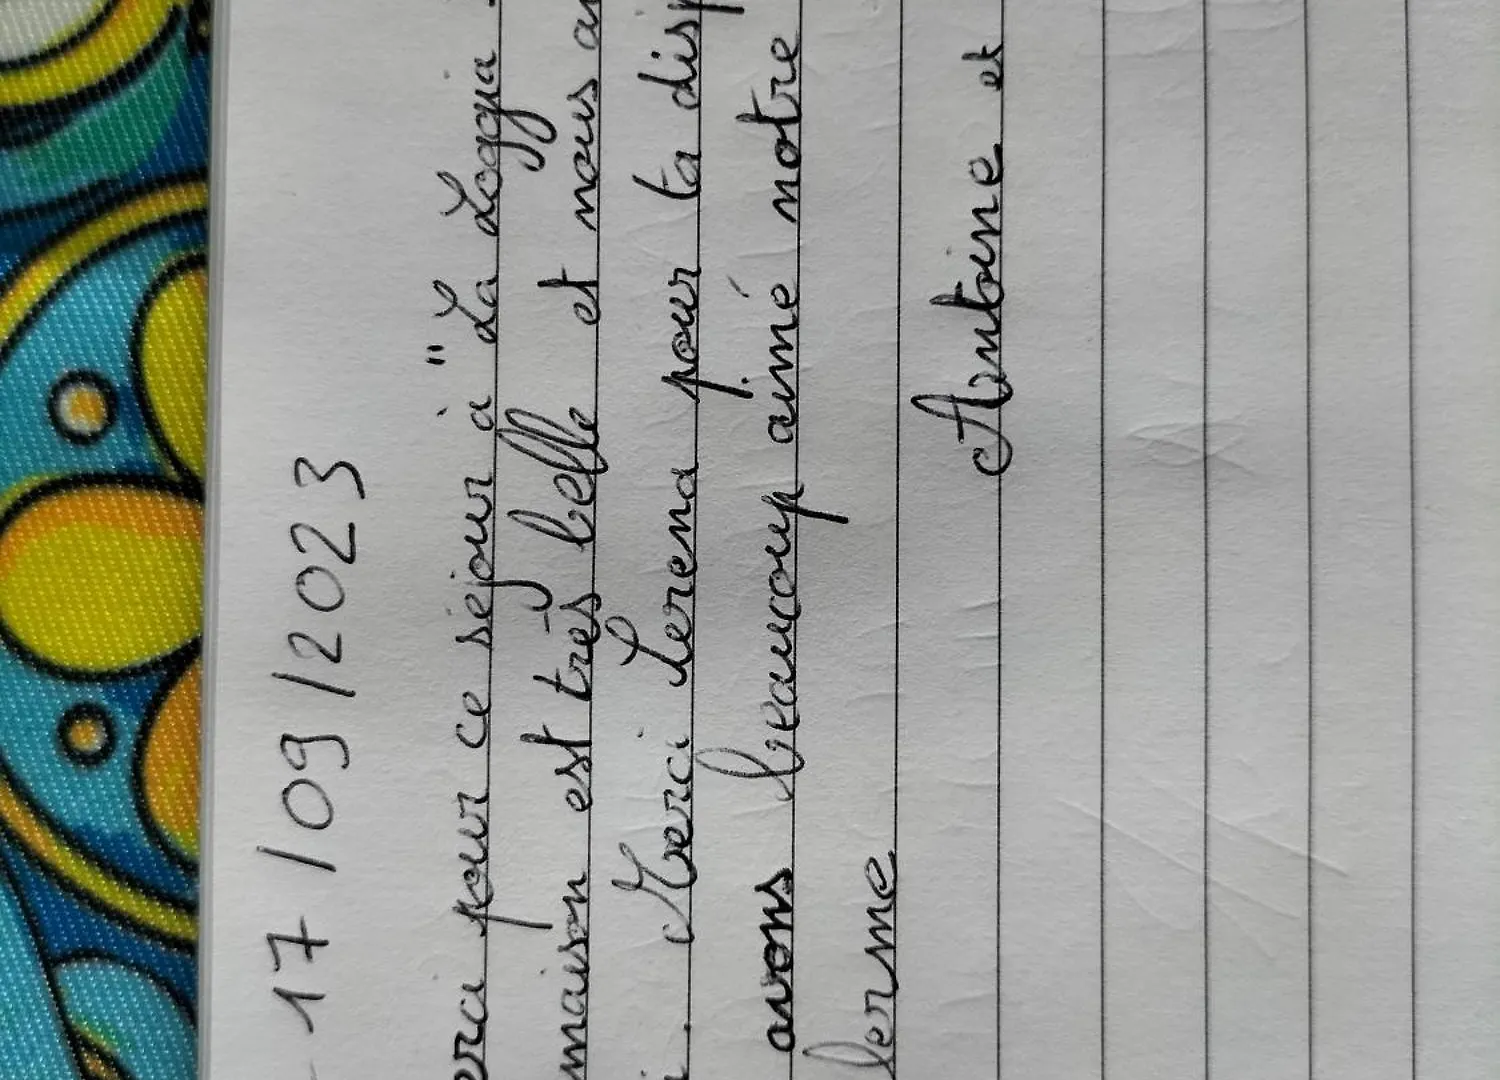 - 17/09/2023
erci pour ce séjour à "La Loggia.
maison est très belle et nous a
. Merci Lerena pour ta disp
avons beaucoup aimé notre
lerme
Antoine et